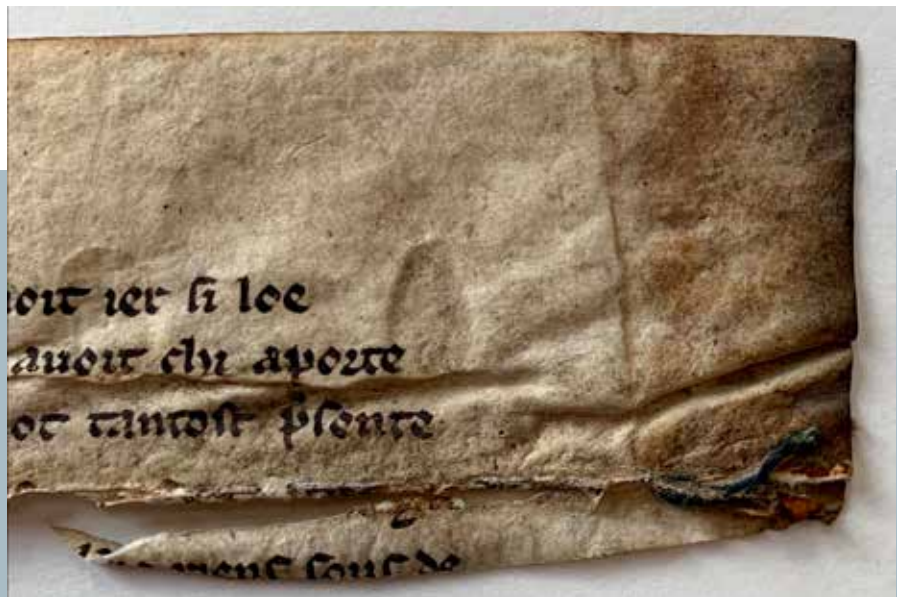 oit ier si loe
auoit chi aporte
ot tantost p̃sente
mens sous de